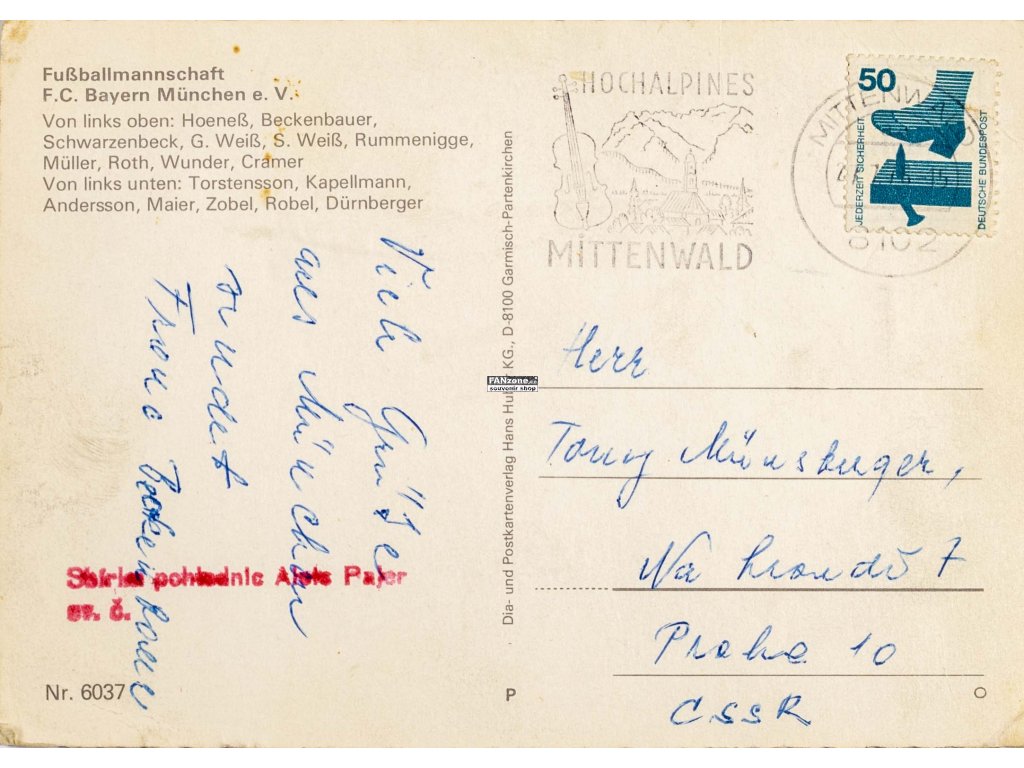 Fußballmannschaft
F.C. Bayern München e. V.
Von links oben: Hoeneß, Beckenbauer,
Schwarzenbeck, G. Weiß, S. Weiß, Rummenigge,
Müller, Roth, Wunder, Cramer
Von links unten: Torstensson, Kapellmann,
Andersson, Maier, Zobel, Robel, Dürnberger
Viele Grüße
aus München
sendet
Franz Beckenbauer
Sbírka pohlednic Alois Pajer
ev. č.
Nr. 6037
Dia- und Postkartenverlag Hans Huber KG., D-8100 Garmisch-Partenkirchen
FANzone.cz
souvenir shop
P
HOCHALPINES
MITTENWALD
MITTENWALD
8102
50
JEDERZEIT SICHERHEIT
DEUTSCHE BUNDESPOST
Herr
Tony
Na 7
Praha 10
CSSR